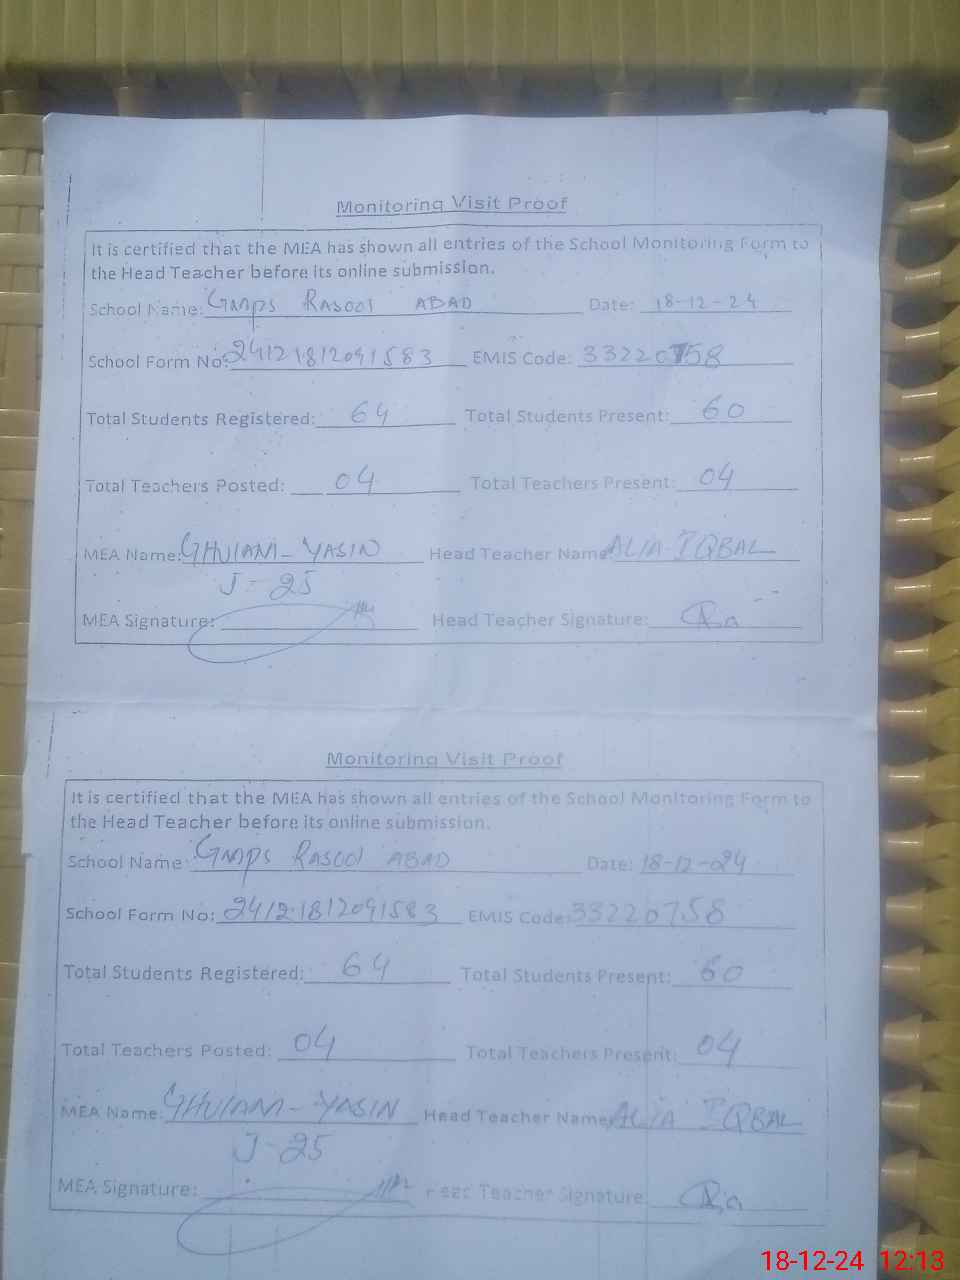 Monitoring Visit Proof
It is certified that the MEA has shown all entries of the School Monitoring Form to
the Head Teacher before its online submission.
School Name: GMPS RASOOL ABAD Date: 18-12-24
School Form No: 24121812091583 EMIS Code: 33220758
Total Students Registered: 64 Total Students Present: 60
Total Teachers Posted: 04 Total Teachers Present: 04
MEA Name: GHULAM-YASIN Head Teacher Name: ALIA IQBAL
J-25
MEA Signature: Head Teacher Signature:
Monitoring Visit Proof
It is certified that the MEA has shown all entries of the School Monitoring Form to
the Head Teacher before its online submission.
School Name: GMPS RASOOL ABAD Date: 18-12-24
School Form No: 24121812091583 EMIS Code: 33220758
Total Students Registered: 64 Total Students Present: 60
Total Teachers Posted: 04 Total Teachers Present: 04
MEA Name: GHULAM-YASIN Head Teacher Name: ALIA IQBAL
J-25
MEA Signature: Head Teacher Signature:
18-12-24 12:13